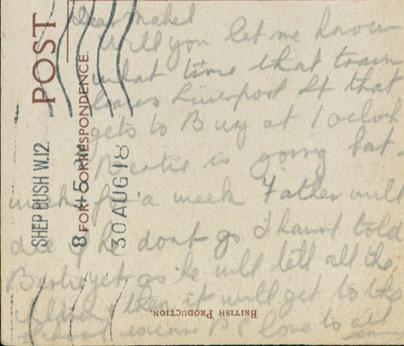 Dear Mabel
Will you let me know
what time that train
leaves Liverpool St that
gets to Bury at 1 oclock
Beatie is going Sat.
week for a week Father will
die if he dont go I havnt told
Bertie yet as he will tell all the
children then it will get to the
school excuse P.C love to all
POST
FOR CORRESPONDENCE.
SHEP BUSH W.12
8 45 PM
30 AUG 18
BRITISH PRODUCTION.